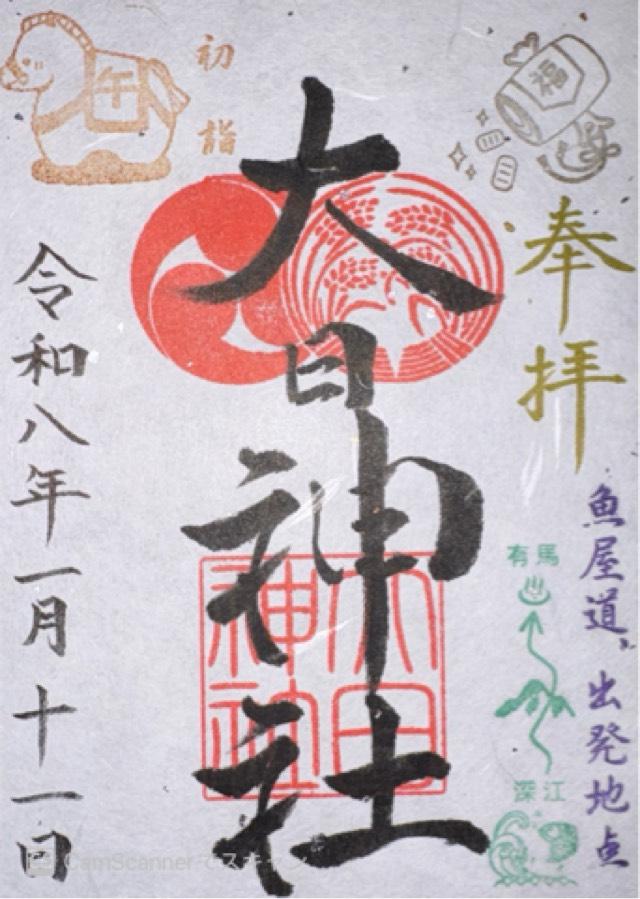 奉拝
魚屋道、出発地点
有馬
深江
福
初詣
午
大日神社
大日神社
令和八年一月十一日
CamScanner でスキャン